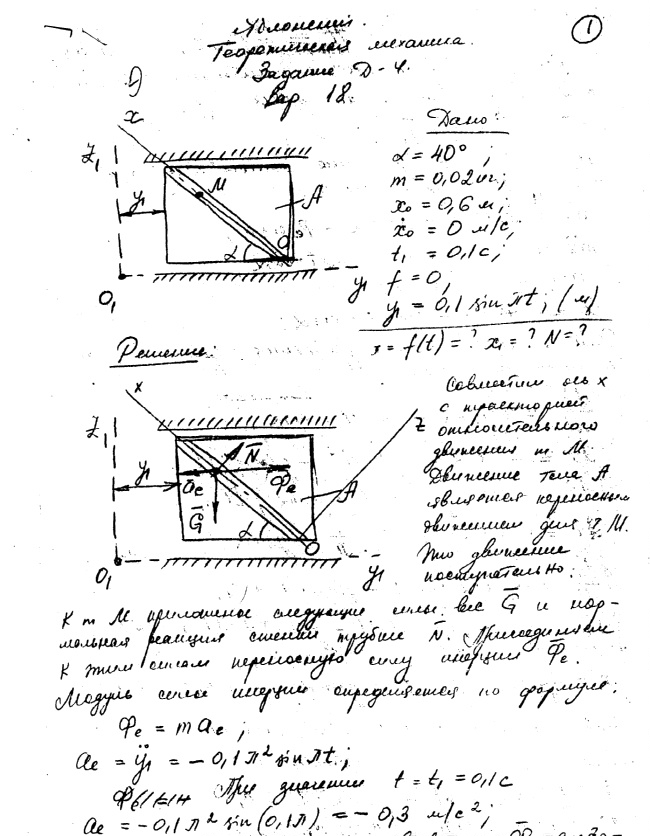 1
Яблонский.
Теоретическая механика.
Задание Д-4.
Вар 18.
Дано:
x
z₁
α = 40°;
m = 0,02 кг;
M
y₁
A
x₀ = 0,6 м;
ẋ₀ = 0 м/с;
α
O
t₁ = 0,1 с;
O₁
y₁
f = 0,
y₁ = 0,1 sin πt, (м)
x = f(t) = ? x₁ = ? N = ?
Решение:
x
Совместим ось x
с траекторией
z
относительного
z₁
движения т M.
N̄
Движение тела A
y₁
āe
Φ̄e
A
является переносным
Ḡ
движением для т M.
α
O
Это движение
O₁
y₁
поступательно.
К т M приложены следующие силы: вес Ḡ и нор-
мальная реакция стенки трубки N̄. Присоединяем
К этим силам переносную силу инерции Φ̄e.
Модуль силы инерции определяется по формуле:
Φe = m ae;
ae = ÿ₁ = − 0,1 π² sin πt;
При значении t = t₁ = 0,1 с
ae = −0,1 π² sin (0,1π) = − 0,3 м/с²;